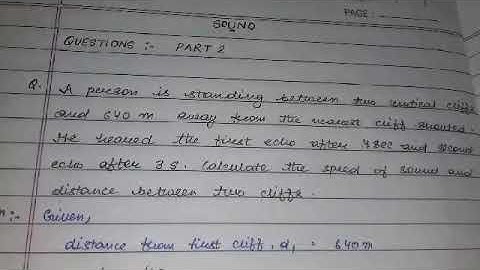 PAGE:
SOUND
QUESTIONS :- PART 2
Q. A person is standing between two vertical cliffs
and 640 m away from the nearest cliff shouted.
He heared the first echo after 4 sec and second
echo after 3 s. Calculate the speed of sound and
distance between two cliffs.
:- Given,
distance from first cliff, d₁ = 640 m